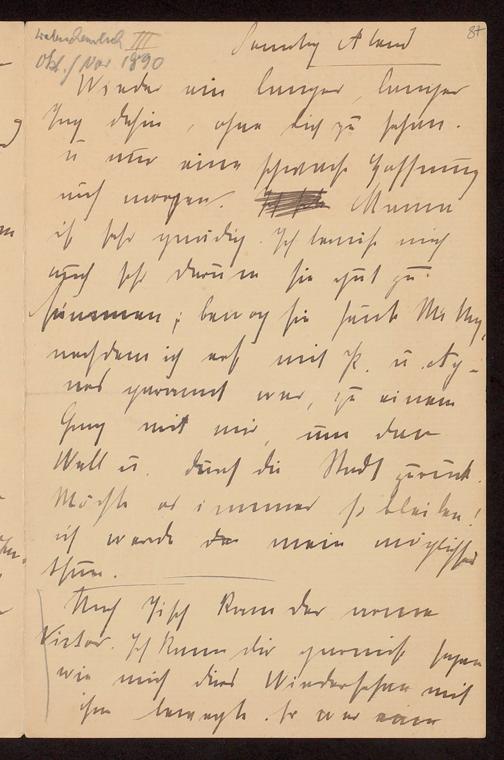 III 87
Okt./Nov 1890
Sonntag Abend
Wieder ein langer, langer
Tag dahin, ohne dich zu sehen.
u nur eine schwache Hoffnung
auf morgen. Mama
ist sehr gnädig. Ich bemühe mich
auch sehr darum sie gut zu
stimmen; bewog sie heute
nachdem ich erst mit P. u. Ag-
nes gerannt war, zu einem
Gang mit mir, um den
Wall u. durch die Stadt zurück.
Möchte es immer so bleiben!
ich werde mein möglichstes
thun.
Nach Tisch kam der arme
Victor. Ich kann dir garnicht sagen
wie mich dies Wiedersehen mit
ihm bewegte. Er war